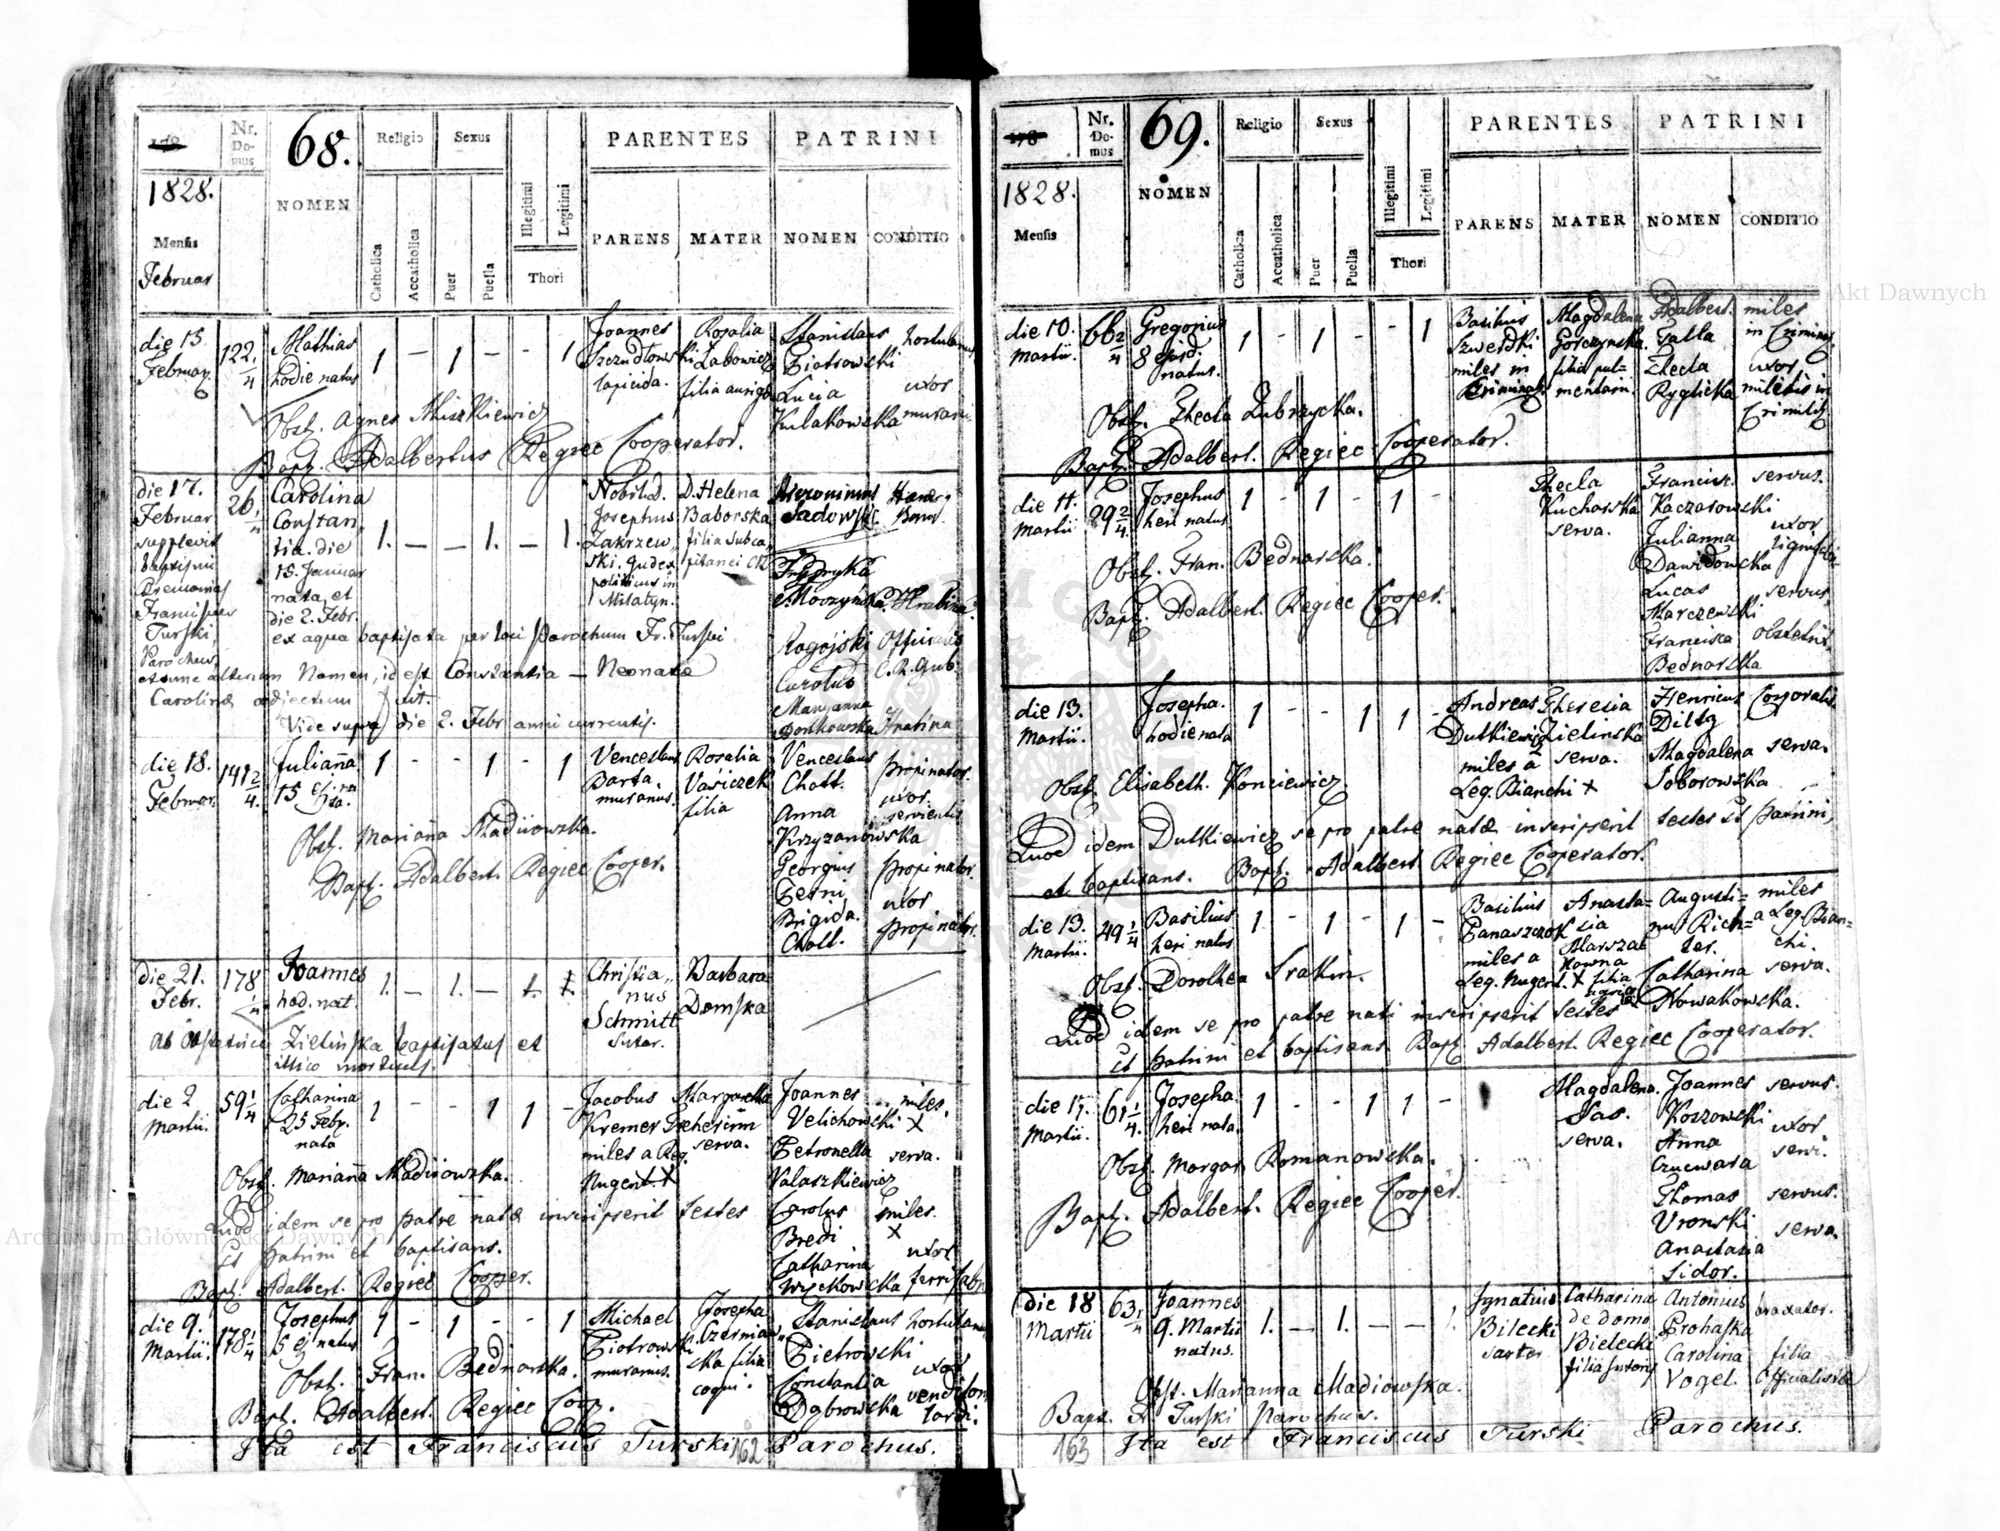 68.
Nr. Domus
Religio
Sexus
PARENTES
PATRINI
1828.
NOMEN
Catholica
Accatholica
Puer
Puella
Illegitimi
Legitimi
Thori
PARENS
MATER
NOMEN
CONDITIO
Mensis
Februar
die 15. Februar. 122 1/4
Mathias hodie natus
1 – 1 – – 1
Joannes Szczudłowski lapicida.
Rosalia Labowicz filia auriga
Stanislaus Piotrowski hortulanus
Lucia Kulakowska uxor murarii
Obst. Agnes Miszkiewicz
Bapt. Adalbertus Regiec Cooperator.
die 17. Februar 26 1/4
supplevit baptismi Ceremonias Franciscus Turski, Parochus
Carolina Constantia die 15. Januar nata, et die 2. Febr.
1. – – 1. – 1.
Nobil. D. Josephus Zakrzewski. Judex politicus in Milatyn.
D. Helena Baborska filia
Hieronimus Sadowski
Moczyńska Hrabina
ex aqua baptisata per loci Parochum Fr. Turski
Rogójski Officialis
alterum Nomen, id est Constantia – Neonatæ
Carolinæ adjectum fuit.
Carolus C. R. Gub.
Vide supra die 2. Febr anni currentis.
Marianna Domkowska
die 18. Februar. 141 2/4.
Julianna 15
1 – – 1 – 1
Venceslaus Barta. murarius.
Rosalia Vasiczek filia
Venceslaus Chott. propinator.
Anna Krzyzanowska uxor servientis
Georgius Petrni propinator.
Brigida. Chott. uxor propinator.
Obst. Marianna Madijowska.
Bapt. Adalbert. Regiec Cooper.
die 21. Febr. 178 1/4
Joannes hod. nat
1. – 1. –
Christianus Schmitt Sutor.
Barbara Domska
ab obstetrice Zielinska baptisatus et
illico mortuus.
die 2 Martii. 59 1/4
Catharina 25 Febr. nata
1 – – 1 1 –
Jacobus Kremer miles a Reg. Nugent. +
Margaretha serva.
Joannes Velichowski miles. +
Petronella Valaszkiewicz serva.
Obst. Marianna Madijowska.
Quod idem se pro patre natæ inscripserit testes
ut patrini et baptisans.
Carolus Bredi miles. +
Catharina Wyckowska uxor ferrifabri
Bapt. Adalbert. Regiec Cooper.
die 9. Martii. 178 1/4
Josephus 5 ej. natus
1 – 1 – – 1
Michael Piotrowski murarius.
Josepha Czerniawska filia coqui.
Stanislaus Pietrowski hortulanus
Constantia Dąbrowska uxor
Obst. Fran. Bednarska.
Bapt. Adalbert. Regiec Coop.
Ita est Franciscus Turski Parochus.
162
69.
Nr. Domus
Religio
Sexus
PARENTES
PATRINI
1828.
NOMEN
Catholica
Accatholica
Puer
Puella
Illegitimi
Legitimi
Thori
PARENS
MATER
NOMEN
CONDITIO
Mensis
die 10. Martii. 66 2/4
Gregorius 8 ejusd. natus.
1 – 1 – – 1
Basilius Szwerdki miles in
Magdalena Gorczynska filia
Adalbert. Galla miles in
Thecla Ryglicka uxor militis in
Obst. Thecla Zubrzycka.
Bapt. Adalbert. Regiec Cooperator.
die 11. Martii 89 2/4.
Josephus heri natus
1 – 1 – 1 –
Thecla Kucharska serva.
Francisc. Kaczorowski servus.
Julianna Dawidowska uxor
Lucas Marczewski servus
Francisca Bednarska obstetrix
Obst. Fran. Bednarska.
Bapt. Adalbert. Regiec Cooper.
die 13. Martii.
Josepha. hodie nata
1 – – 1 1 –
Andreas Dutkiewicz miles a Leg. Bianchi +
Theresia Zielinska serva.
Henricus Diltz Corporalis.
Magdalena Soborowska serva.
Obst. Elisabeth. Konciewicz
Quod idem Dutkiewicz se pro patre natæ inscripserit testes ut patrini,
et baptisans. Bapt. Adalbert Regiec Cooperator.
die 13. Martii. 49 1/4
Basilius heri natus
1 – 1 – 1 –
Basilius Panaszczok miles a Leg. Nugent. +
Anastasia Marszakowna filia
Augustinus Richter. miles a Leg. Bianchi.
Catharina Nowakowska. serva.
Obst. Dorothea Srakin.
Quod idem se pro patre nati inscripserit testes
ut patrini et baptisans. Bapt. Adalbert. Regiec Cooperator.
die 17. Martii. 61 1/4.
Josepha. heri nata.
1 – – 1 1 –
Magdalena. Sas. serva.
Joannes Koszowski servus.
Anna uxor servi.
Thomas Vronski servus.
Anastasia Sidor. serva.
Obst. Margar. Romanowska.
Bapt. Adalbert. Regiec Cooper.
die 18 Martii 63 1/4
Joannes 9. Martii natus.
1. – 1. –
Ignatius Bilecki sartor
Catharina de domo Bielecki filia sutoris
Antonius Prohaska braxator.
Carolina Vogel. filia Officialis
Obst. Marianna Madiowska.
Bapt. Fr Turski Parochus.
163
Ita est Franciscus Turski Parochus.
Archiwum Główne Akt Dawnych
Archiwum Główne Akt Dawnych